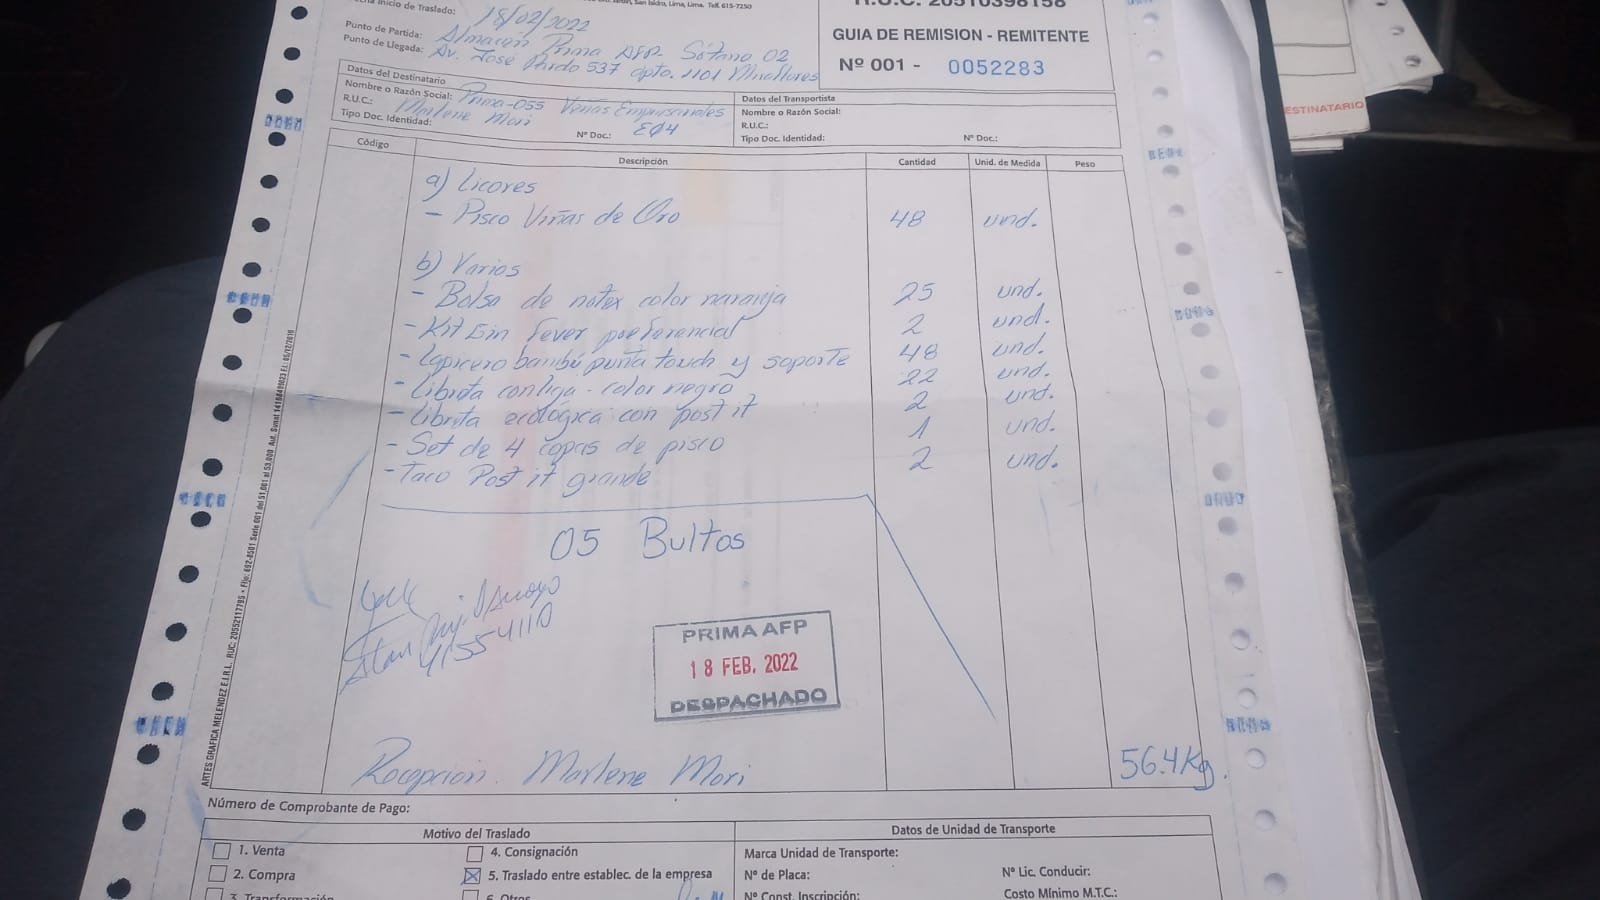 San Isidro, Lima, Lima. Telf. 615-7250
Inicio de Traslado: 18/02/2022
Punto de Partida: Almacén Prima AFP Sótano 02
Punto de Llegada: Av. José Pardo 537 dpto. 1101 Miraflores
R.U.C. 20510398158
GUIA DE REMISION - REMITENTE
Nº 001 - 0052283
Datos del Destinatario
Nombre o Razón Social: Prima-055
R.U.C.: Marlene Mori
Tipo Doc. Identidad:
Nº Doc.: E04
Datos del Transportista
Nombre o Razón Social:
R.U.C.:
Tipo Doc. Identidad:
Nº Doc.:
ESTINATARIO
Código Descripción Cantidad Unid. de Medida Peso
a) Licores
- Pisco Viñas de Oro 48 und.
b) Varios
- Bolsa de notex color naranja 25 und.
- Kit Gin Fever preferencial 2 und.
- Lapicero bambú punta touch y soporte 48 und.
- Libreta con liga - color negro 22 und.
- Libreta ecológica con post it 2 und.
- Set de 4 copas de pisco 1 und.
- Taco Post it grande 2 und.
05 Bultos
41554110
PRIMA AFP
18 FEB. 2022
DESPACHADO
Marlene Mori
56.4Kg.
ARTES GRAFICA MELENDEZ E.I.R.L. RUC: 20552117795 • Fijo: 692-8501 Serie 001 del 51,001 al 53,000 Aut. Sunat F.I.: 05/12/2019
Número de Comprobante de Pago:
Motivo del Traslado
1. Venta
2. Compra
3. Transformación
4. Consignación
5. Traslado entre establec. de la empresa
6. Otros
Datos de Unidad de Transporte
Marca Unidad de Transporte:
Nº de Placa:
Nº Const. Inscripción:
Nº Lic. Conducir:
Costo Mínimo M.T.C.: